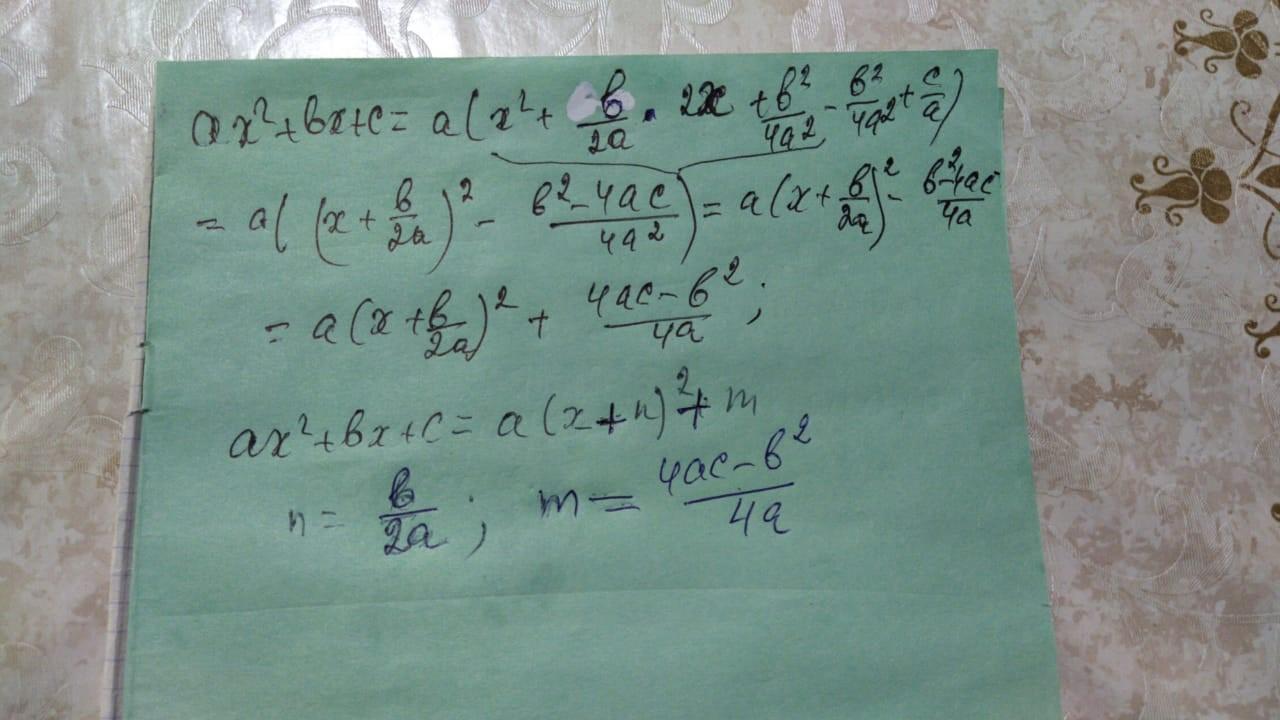 ax²+bx+c = a(x²+ b/2a · 2x + b²/4a² - b²/4a² + c/a)
= a((x + b/2a)² - b²-4ac/4a²) = a(x + b/2a)² - b²-4ac/4a
= a(x + b/2a)² + 4ac-b²/4a;
ax²+bx+c = a(x+n)²+m
n = b/2a; m = 4ac-b²/4a